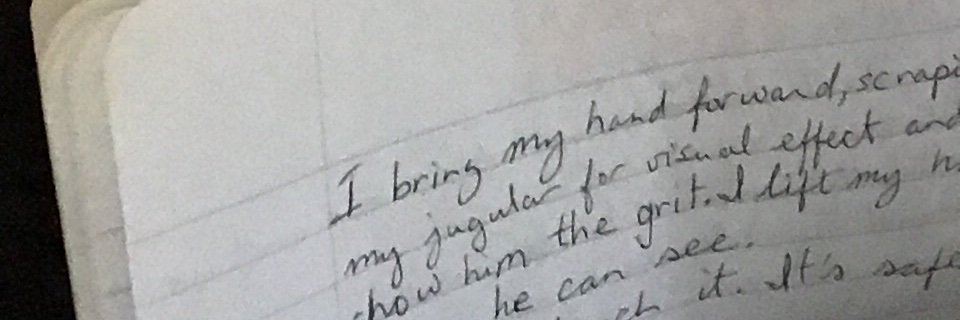 I bring my hand forward,
my jugular for visual effect and
show him the grit. I lift my
he can see.
it. It's safe